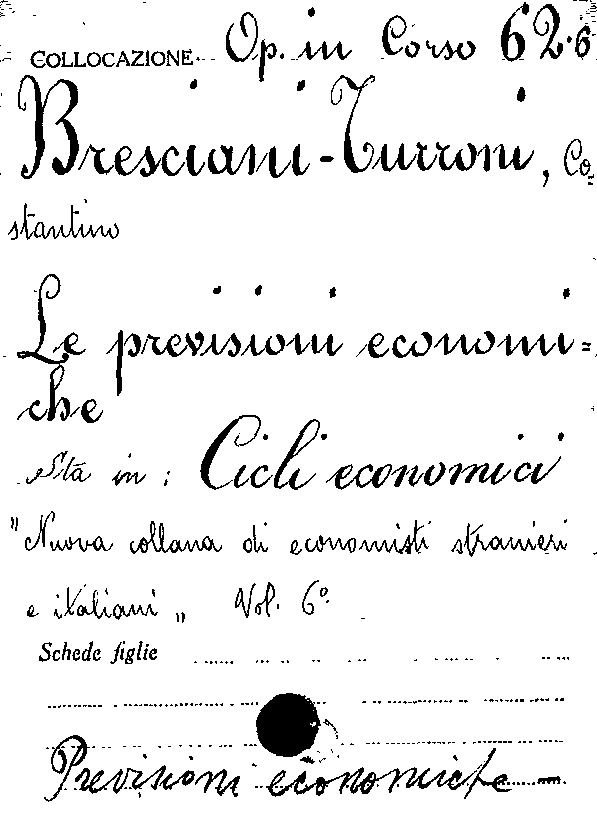 COLLOCAZIONE Op. in Corso 62.6
Bresciani-Turroni, Co=
stantino
Le previsioni economi=
che
Sta in: Cicli economici
"Nuova collana di economisti stranieri
e italiani" Vol. 6°.
Schede figlie
Previsioni economiche -